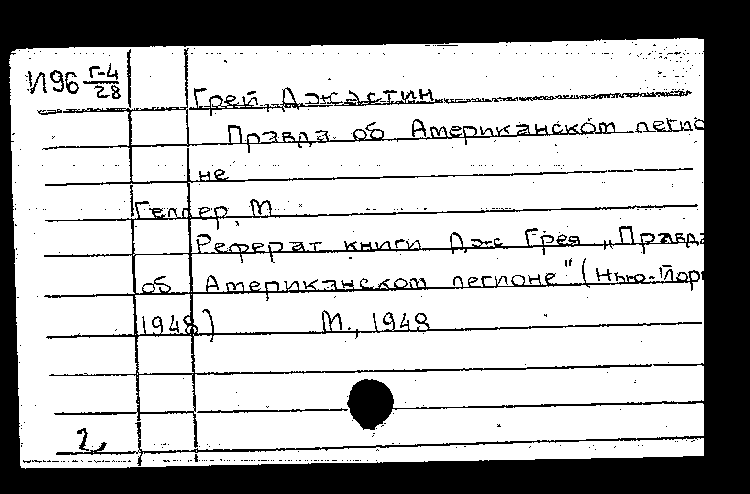 И96 Г-4/28
Грей, Джастин
Правда об Американском легио
не
Геллер, М
Реферат книги Дж Грея „Правда
об Американском легионе" (Нью-Йорк
1948) М., 1948
2